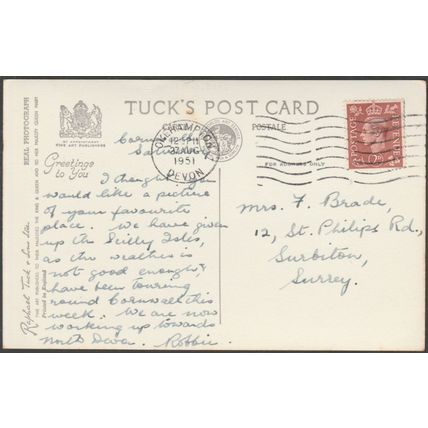 TUCK'S POST CARD
REAL PHOTOGRAPH
BY APPOINTMENT
FINE ART PUBLISHERS
Greetings
to You
POSTALE
FOR ADDRESS ONLY
OKEHAMPTON
12 15 PM
AUG
1951
DEVON
POSTAGE
REVENUE
Saturday
I thought you
would like a picture
of your favourite
place. We have given
up the Scilly Isles,
as the weather is
not good enough, &
have been touring
round Cornwall this
week. We are now
working up towards
North Devon. Robbie.
Mrs. F. Brade,
12, St. Philips Rd.,
Surbiton,
Surrey.
Raphael Tuck & Sons Ltd.
FINE ART PUBLISHERS TO THEIR MAJESTIES THE KING & QUEEN AND TO HER MAJESTY QUEEN MARY
Printed in England